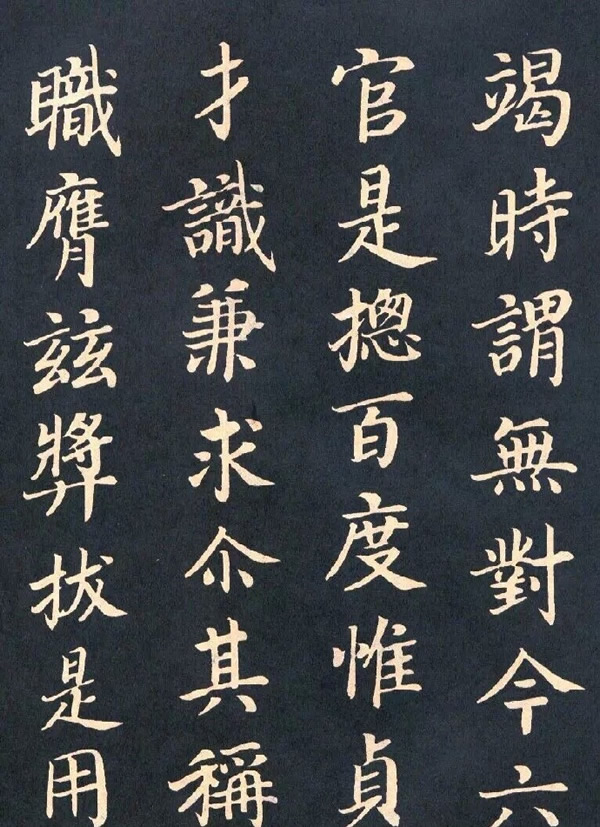 竭時謂無對今六
官是揔百度惟貞
才識兼求尒其稱
職膺茲奬拔是用